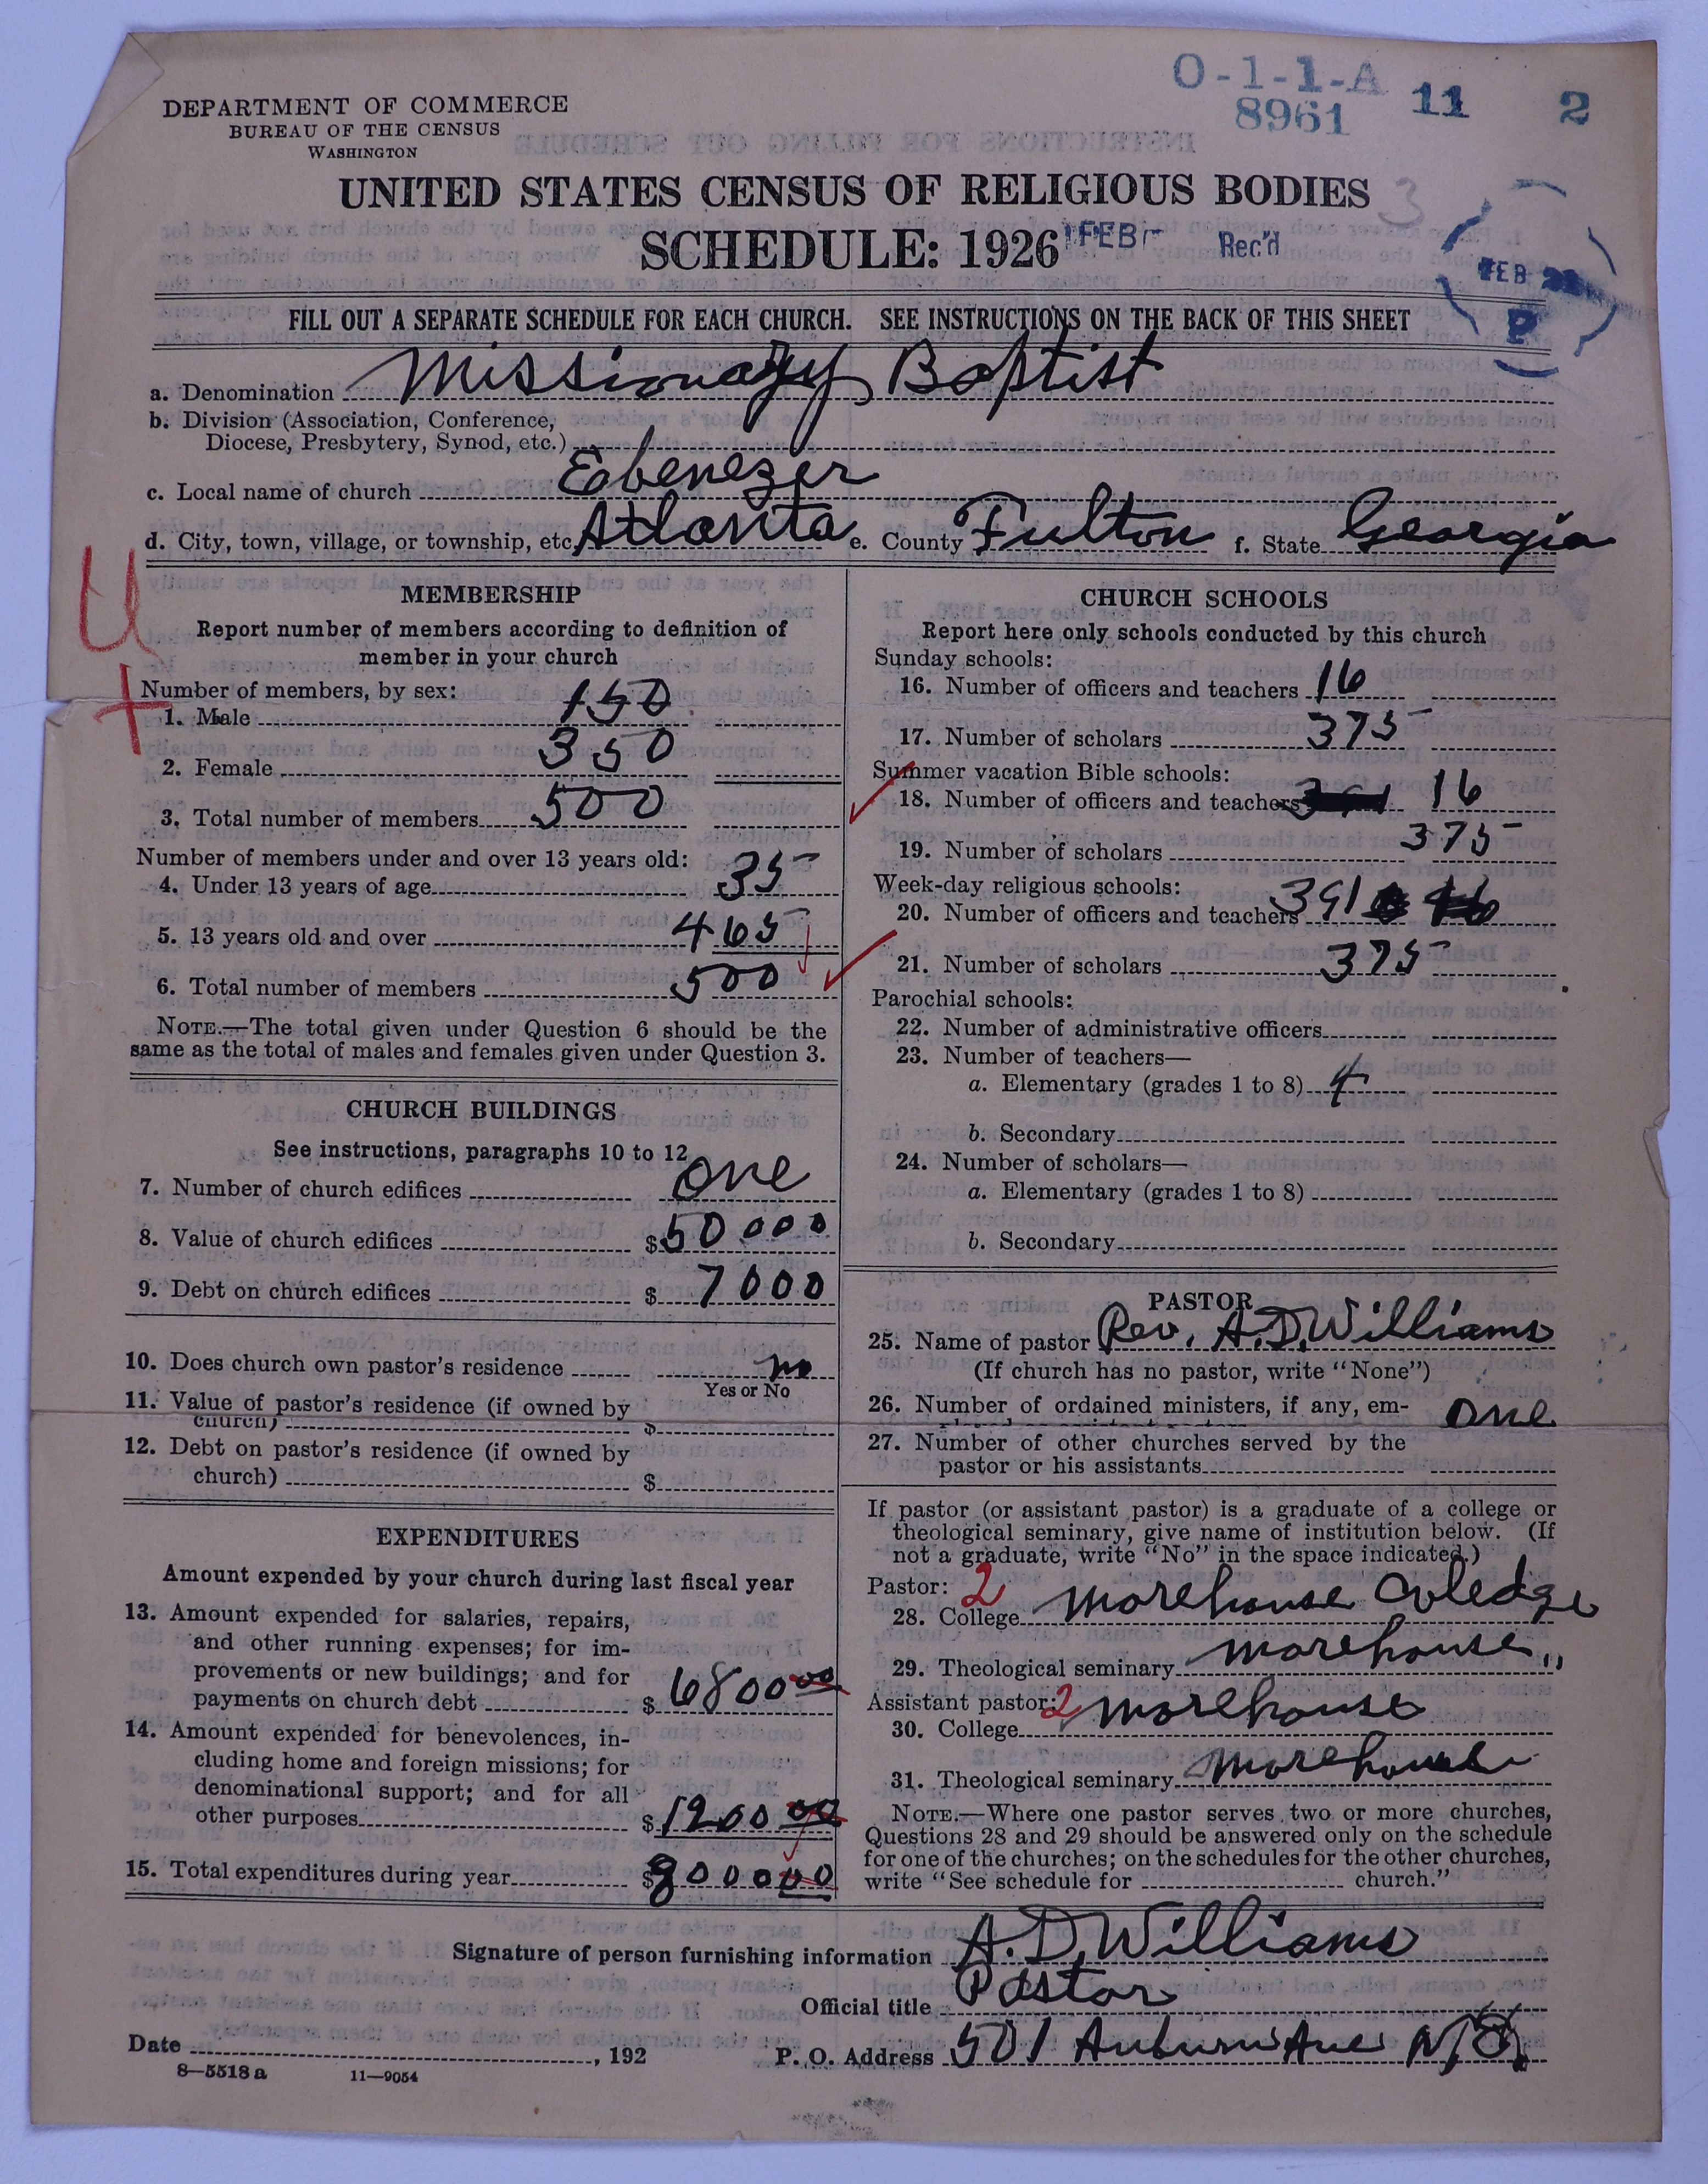 O-1-1-A 11 2
8961
DEPARTMENT OF COMMERCE
BUREAU OF THE CENSUS
WASHINGTON
UNITED STATES CENSUS OF RELIGIOUS BODIES 3
SCHEDULE: 1926 FEB Rec'd FEB
P
FILL OUT A SEPARATE SCHEDULE FOR EACH CHURCH. SEE INSTRUCTIONS ON THE BACK OF THIS SHEET
a. Denomination Missionary Baptist
b. Division (Association, Conference,
Diocese, Presbytery, Synod, etc.)
c. Local name of church Ebenezer
d. City, town, village, or township, etc. Atlanta e. County Fulton f. State Georgia
U
+
MEMBERSHIP
Report number of members according to definition of
member in your church
Number of members, by sex:
1. Male 150
2. Female 350
3. Total number of members 500
Number of members under and over 13 years old:
4. Under 13 years of age 35
5. 13 years old and over 465
6. Total number of members 500
NOTE.—The total given under Question 6 should be the
same as the total of males and females given under Question 3.
CHURCH BUILDINGS
See instructions, paragraphs 10 to 12
7. Number of church edifices one
8. Value of church edifices $50000
9. Debt on church edifices $ 7000
10. Does church own pastor's residence no
Yes or No
11. Value of pastor's residence (if owned by
church) $
12. Debt on pastor's residence (if owned by
church) $
EXPENDITURES
Amount expended by your church during last fiscal year
13. Amount expended for salaries, repairs,
and other running expenses; for im-
provements or new buildings; and for
payments on church debt $ 6800 00
14. Amount expended for benevolences, in-
cluding home and foreign missions; for
denominational support; and for all
other purposes $1200 00
15. Total expenditures during year $8000 00
CHURCH SCHOOLS
Report here only schools conducted by this church
Sunday schools:
16. Number of officers and teachers 16
17. Number of scholars 375
Summer vacation Bible schools:
18. Number of officers and teachers 16
19. Number of scholars 375
Week-day religious schools:
20. Number of officers and teachers 391
21. Number of scholars 375
Parochial schools:
22. Number of administrative officers
23. Number of teachers—
a. Elementary (grades 1 to 8) 4
b. Secondary
24. Number of scholars—
a. Elementary (grades 1 to 8)
b. Secondary
PASTOR
25. Name of pastor Rev. A.D. Williams
(If church has no pastor, write "None")
26. Number of ordained ministers, if any, em- one
27. Number of other churches served by the
pastor or his assistants
If pastor (or assistant pastor) is a graduate of a college or
theological seminary, give name of institution below. (If
not a graduate, write "No" in the space indicated.)
Pastor: 2
28. College morehouse Coledge
29. Theological seminary morehouse "
Assistant pastor: 2
30. College morehouse
31. Theological seminary morehouse
NOTE.—Where one pastor serves two or more churches,
Questions 28 and 29 should be answered only on the schedule
for one of the churches; on the schedules for the other churches,
write "See schedule for church."
Signature of person furnishing information A.D. Williams
Official title Pastor
Date , 192 P. O. Address 501 Auburn Ave
8—5518 a 11—9054